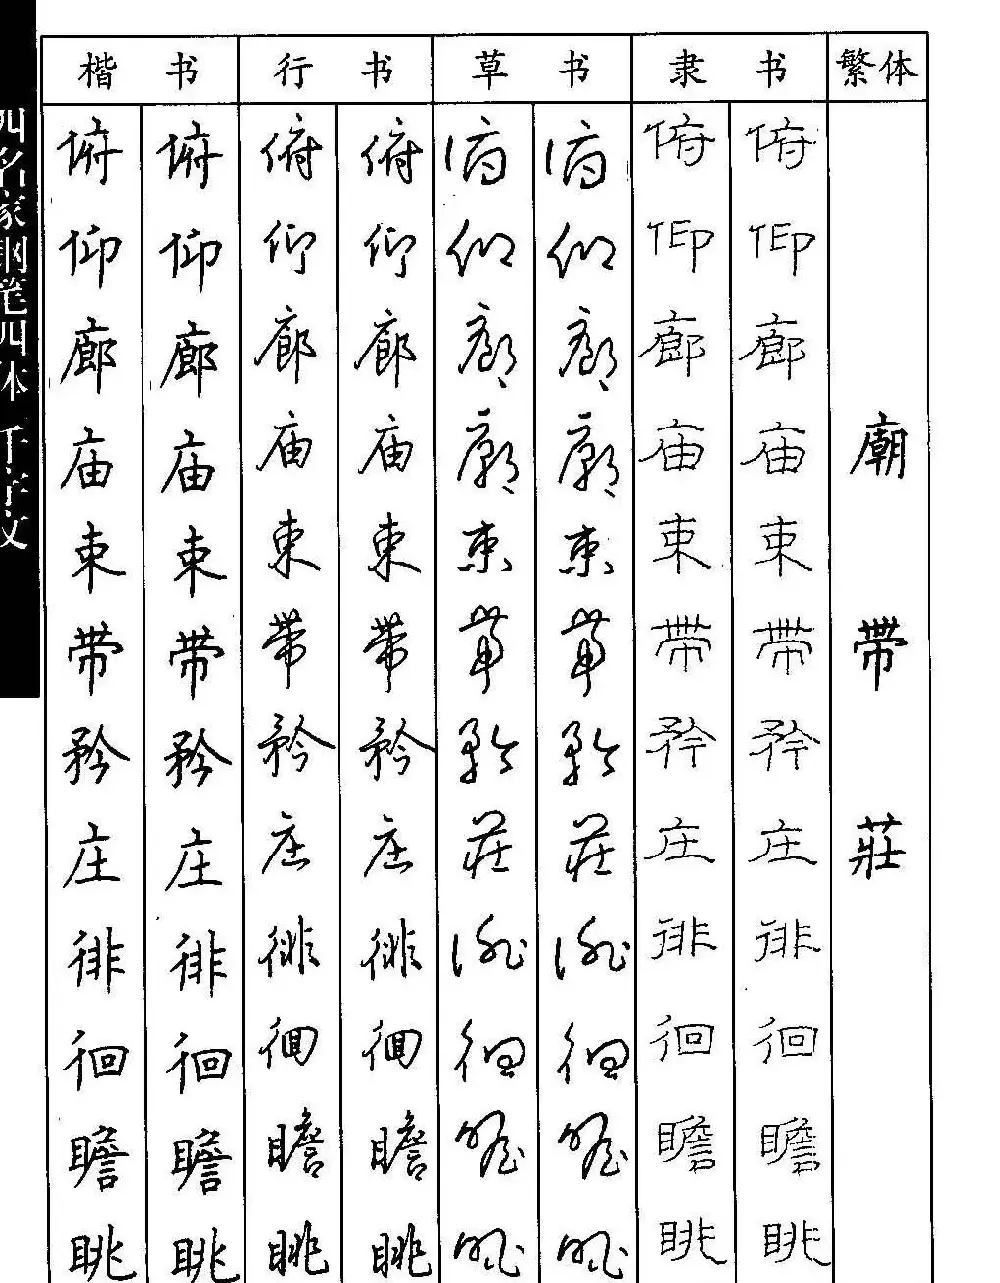 楷书 行书 草书 隶书 繁体
俯 俯 俯 俯 俯 俯 俯 俯
仰 仰 仰 仰 仰 仰 仰 仰
廊 廊 廊 廊 廊 廊 廊 廊
庙 庙 庙 庙 廟 廟 庙 庙 廟
束 束 束 束 束 束 束 束
带 带 帶 帶 帶 帶 帶 帶 帶
矜 矜 矜 矜 矜 矜 矜 矜
庄 庄 庄 庄 莊 莊 庄 庄 莊
徘 徘 徘 徘 徘 徘 徘 徘
徊 徊 徊 徊 徊 徊 徊 徊
瞻 瞻 瞻 瞻 瞻 瞻 瞻 瞻
眺 眺 眺 眺 眺 眺 眺 眺
四名家钢笔四体千字文